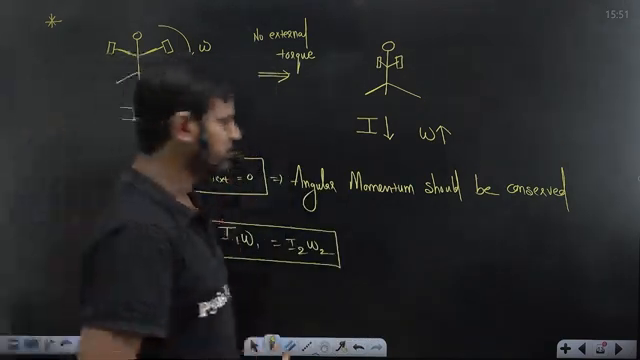 15:51
*
ω
No external
torque
⟹
I
I↓ ω↑
= 0 ⇒ Angular Momentum should be conserved
I₁ω₁ = I₂ω₂